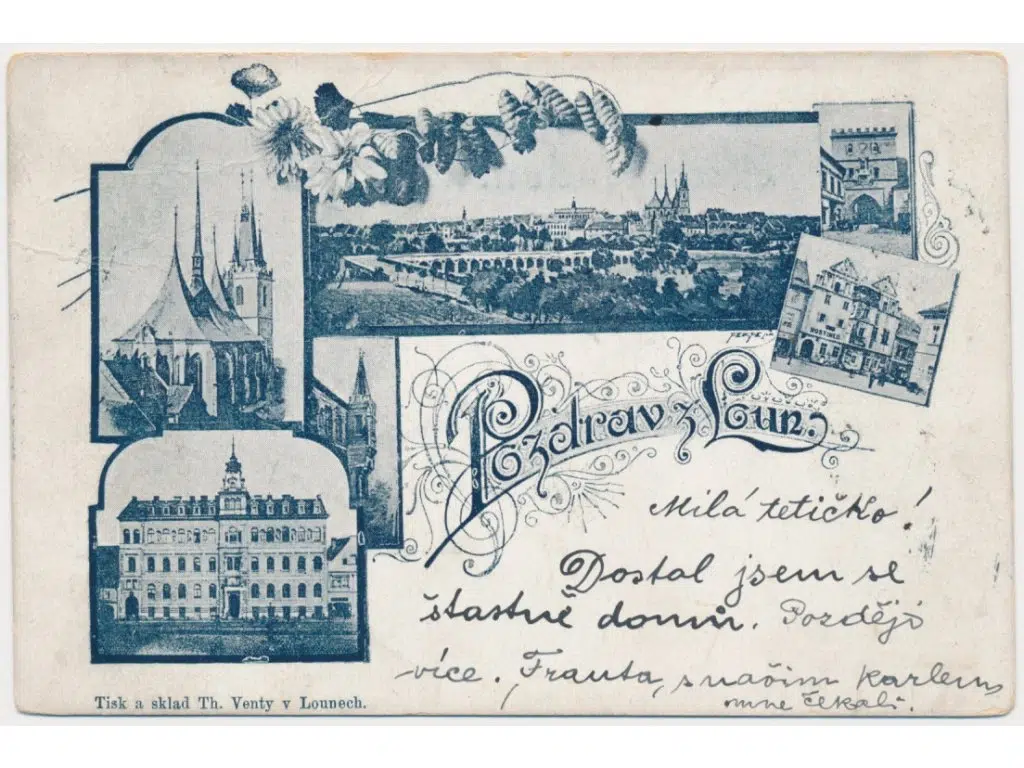 Pozdrav z Loun.
HOSTINEC
Milá tetičko!
Dostal jsem se
šťastně domů. Později
více. Frauta, s naším Karlem
mne čekali.
Tisk a sklad Th. Venty v Lounech.